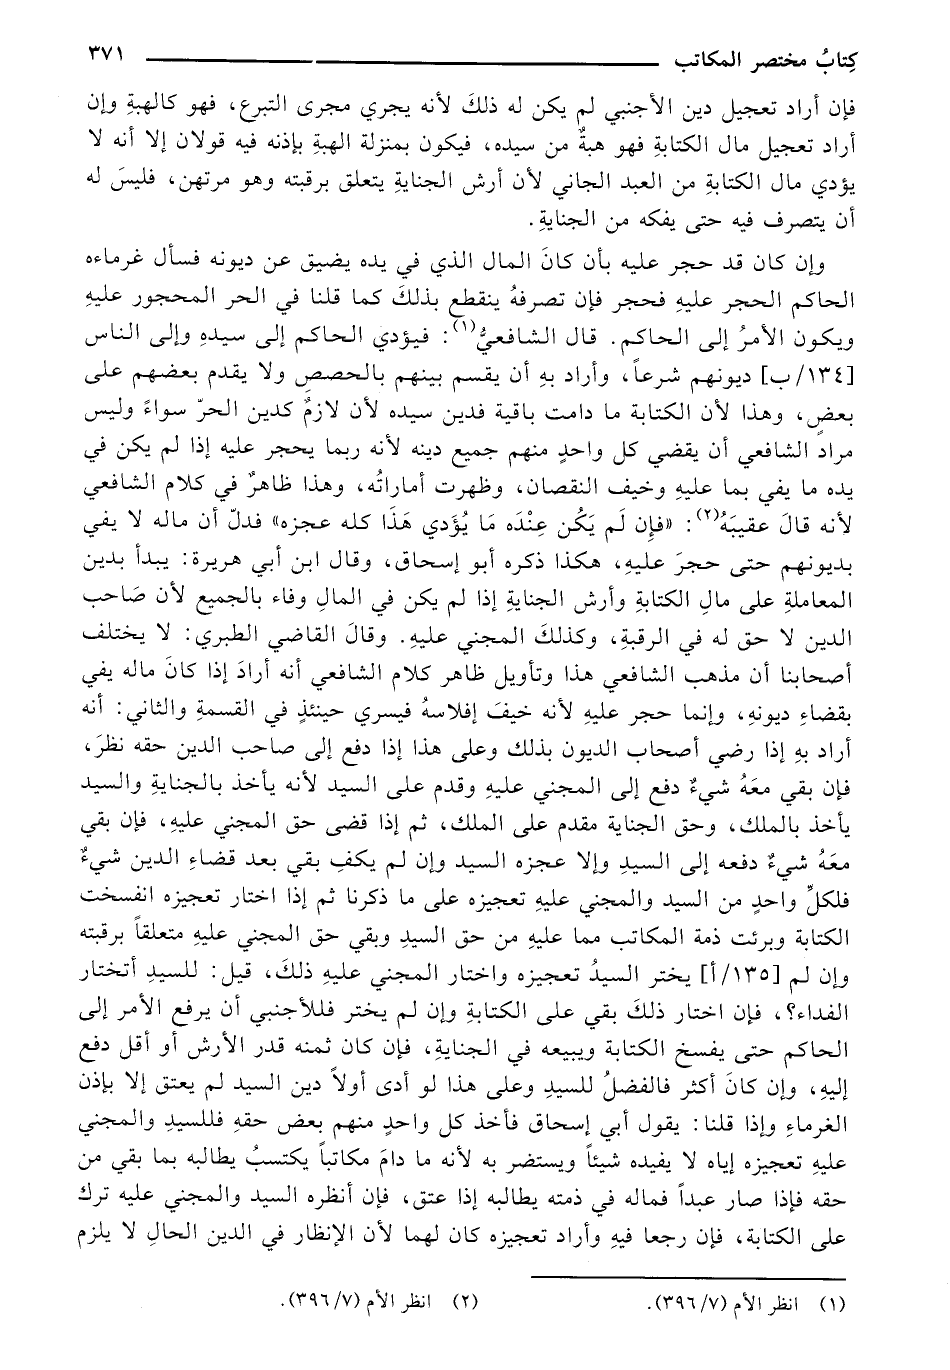 كِتابُ مختصر المكاتب ٣٧١
فإن أراد تعجيل دين الأجنبي لم يكن له ذلكَ لأنه يجري مجرى التبرع، فهو كالهبةِ وإن
أراد تعجيل مال الكتابةِ فهو هبةٌ من سيده، فيكون بمنزلة الهبةِ بإذنه فيه قولان إلا أنه لا
يؤدي مال الكتابةِ من العبد الجاني لأن أرش الجنايةِ يتعلق برقبته وهو مرتهن، فليسَ له
أن يتصرف فيه حتى يفكه من الجنايةِ.
وإن كان قد حجر عليه بأن كانَ المال الذي في يده يضيق عن ديونه فسأل غرماءه
الحاكم الحجر عليهِ فحجر فإن تصرفهُ ينقطع بذلكَ كما قلنا في الحر المحجور عليهِ
ويكون الأمرُ إلى الحاكم. قال الشافعيُّ(١): فيؤدي الحاكم إلى سيدهِ وإلى الناس
[١٣٤/ ب] ديونهم شرعاً، وأراد بهِ أن يقسم بينهم بالحصصِ ولا يقدم بعضهم على
بعضٍ، وهذا لأن الكتابة ما دامت باقية فدين سيده لأن لازمٌ كدين الحرّ سواءً وليس
مراد الشافعي أن يقضي كل واحدٍ منهم جميع دينه لأنه ربما يحجر عليه إذا لم يكن في
يده ما يفي بما عليهِ وخيف النقصان، وظهرت أماراتُه، وهذا ظاهرٌ في كلام الشافعي
لأنه قالَ عقيبَهُ(٢): «فإِن لَم يَكُن عِنْدَه مَا يُؤَدي هَذَا كله عجزه» فدلّ أن ماله لا يفي
بديونهم حتى حجرَ عليهِ، هكذا ذكره أبو إسحاق، وقال ابن أبي هريرة: يبدأ بدين
المعاملةِ على مالِ الكتابةِ وأرش الجنايةِ إذا لم يكن في المالِ وفاء بالجميع لأن صَاحب
الدين لا حق له في الرقبةِ، وكذلكَ المجني عليهِ. وقالَ القاضي الطبري: لا يختلف
أصحابنا أن مذهب الشافعي هذا وتأويل ظاهر كلام الشافعي أنه أرادَ إذا كانَ ماله يفي
بقضاءِ ديونهِ، وإنما حجر عليهِ لأنه خيفَ إفلاسهُ فيسري حينئذٍ في القسمةِ والثاني: أنه
أراد بهِ إذا رضي أصحاب الديون بذلك وعلى هذا إذا دفع إلى صاحب الدين حقه نظرَ،
فإن بقي معَهُ شيءٌ دفع إلى المجني عليهِ وقدم على السيد لأنه يأخذ بالجنايةِ والسيد
يأخذ بالملك، وحق الجناية مقدم على الملك، ثم إذا قضى حق المجني عليهِ، فإن بقي
معَهُ شيءٌ دفعه إلى السيدِ وإلا عجزه السيد وإن لم يكفِ بقي بعد قضاءِ الدين شيءٌ
فلكلِّ واحدٍ من السيد والمجني عليهِ تعجيزه على ما ذكرنا ثم إذا اختار تعجيزه انفسخت
الكتابة وبرئت ذمة المكاتب مما عليهِ من حق السيدِ وبقي حق المجني عليهِ متعلقاً برقبته
وإن لم [١٣٥/ أ] يختر السيدُ تعجيزه واختار المجني عليهِ ذلكَ، قيل: للسيدِ أتختار
الفداء؟، فإن اختار ذلكَ بقي على الكتابةِ وإن لم يختر فللأجنبي أن يرفع الأمر إلى
الحاكم حتى يفسخ الكتابة ويبيعه في الجنايةِ، فإن كان ثمنه قدر الأرش أو أقل دفع
إليهِ، وإن كانَ أكثر فالفضلُ للسيدِ وعلى هذا لو أدى أولاً دين السيد لم يعتق إلا بإذن
الغرماءِ وإذا قلنا: يقول أبي إسحاق فأخذ كل واحدٍ منهم بعض حقهِ فللسيدِ والمجني
عليهِ تعجيزه إياه لا يفيده شيئاً ويستضر به لأنه ما دامَ مكاتباً يكتسبُ يطالبه بما بقي من
حقه فإذا صار عبداً فماله في ذمته يطالبه إذا عتق، فإن أنظره السيد والمجني عليه ترك
على الكتابة، فإن رجعا فيهِ وأراد تعجيزه كان لهما لأن الإنظار في الدين الحالِ لا يلزم
(١) انظر الأم (٣٩٦/٧). (٢) انظر الأم (٣٩٦/٧).